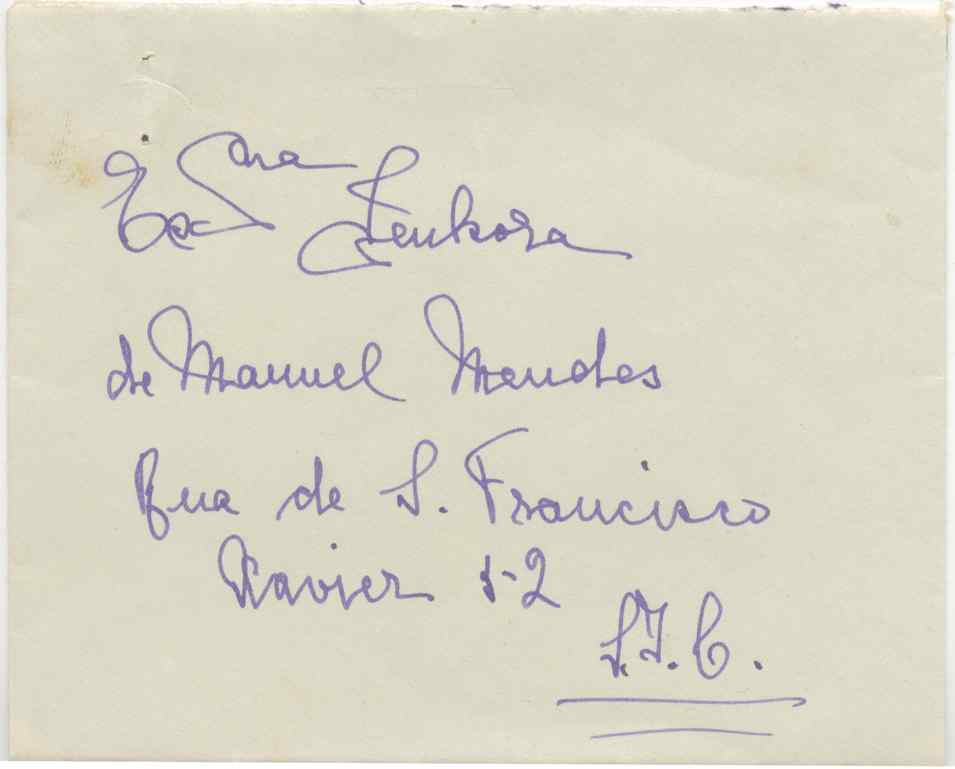 Exma Senhora
de Manuel Mendes
Rua de S. Francisco
Xavier 1-2